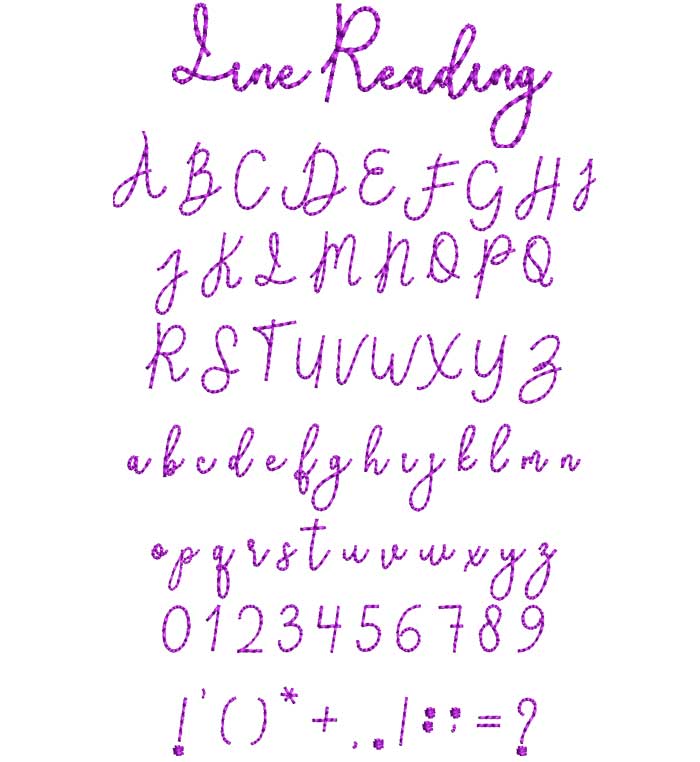 Line Reading
A B C D E F G H I
J K L M N O P Q
R S T U V W X Y Z
a b c d e f g h i j k l m n
o p q r s t u v w x y z
0 1 2 3 4 5 6 7 8 9
! ' ( ) * + , . / : ; = ?